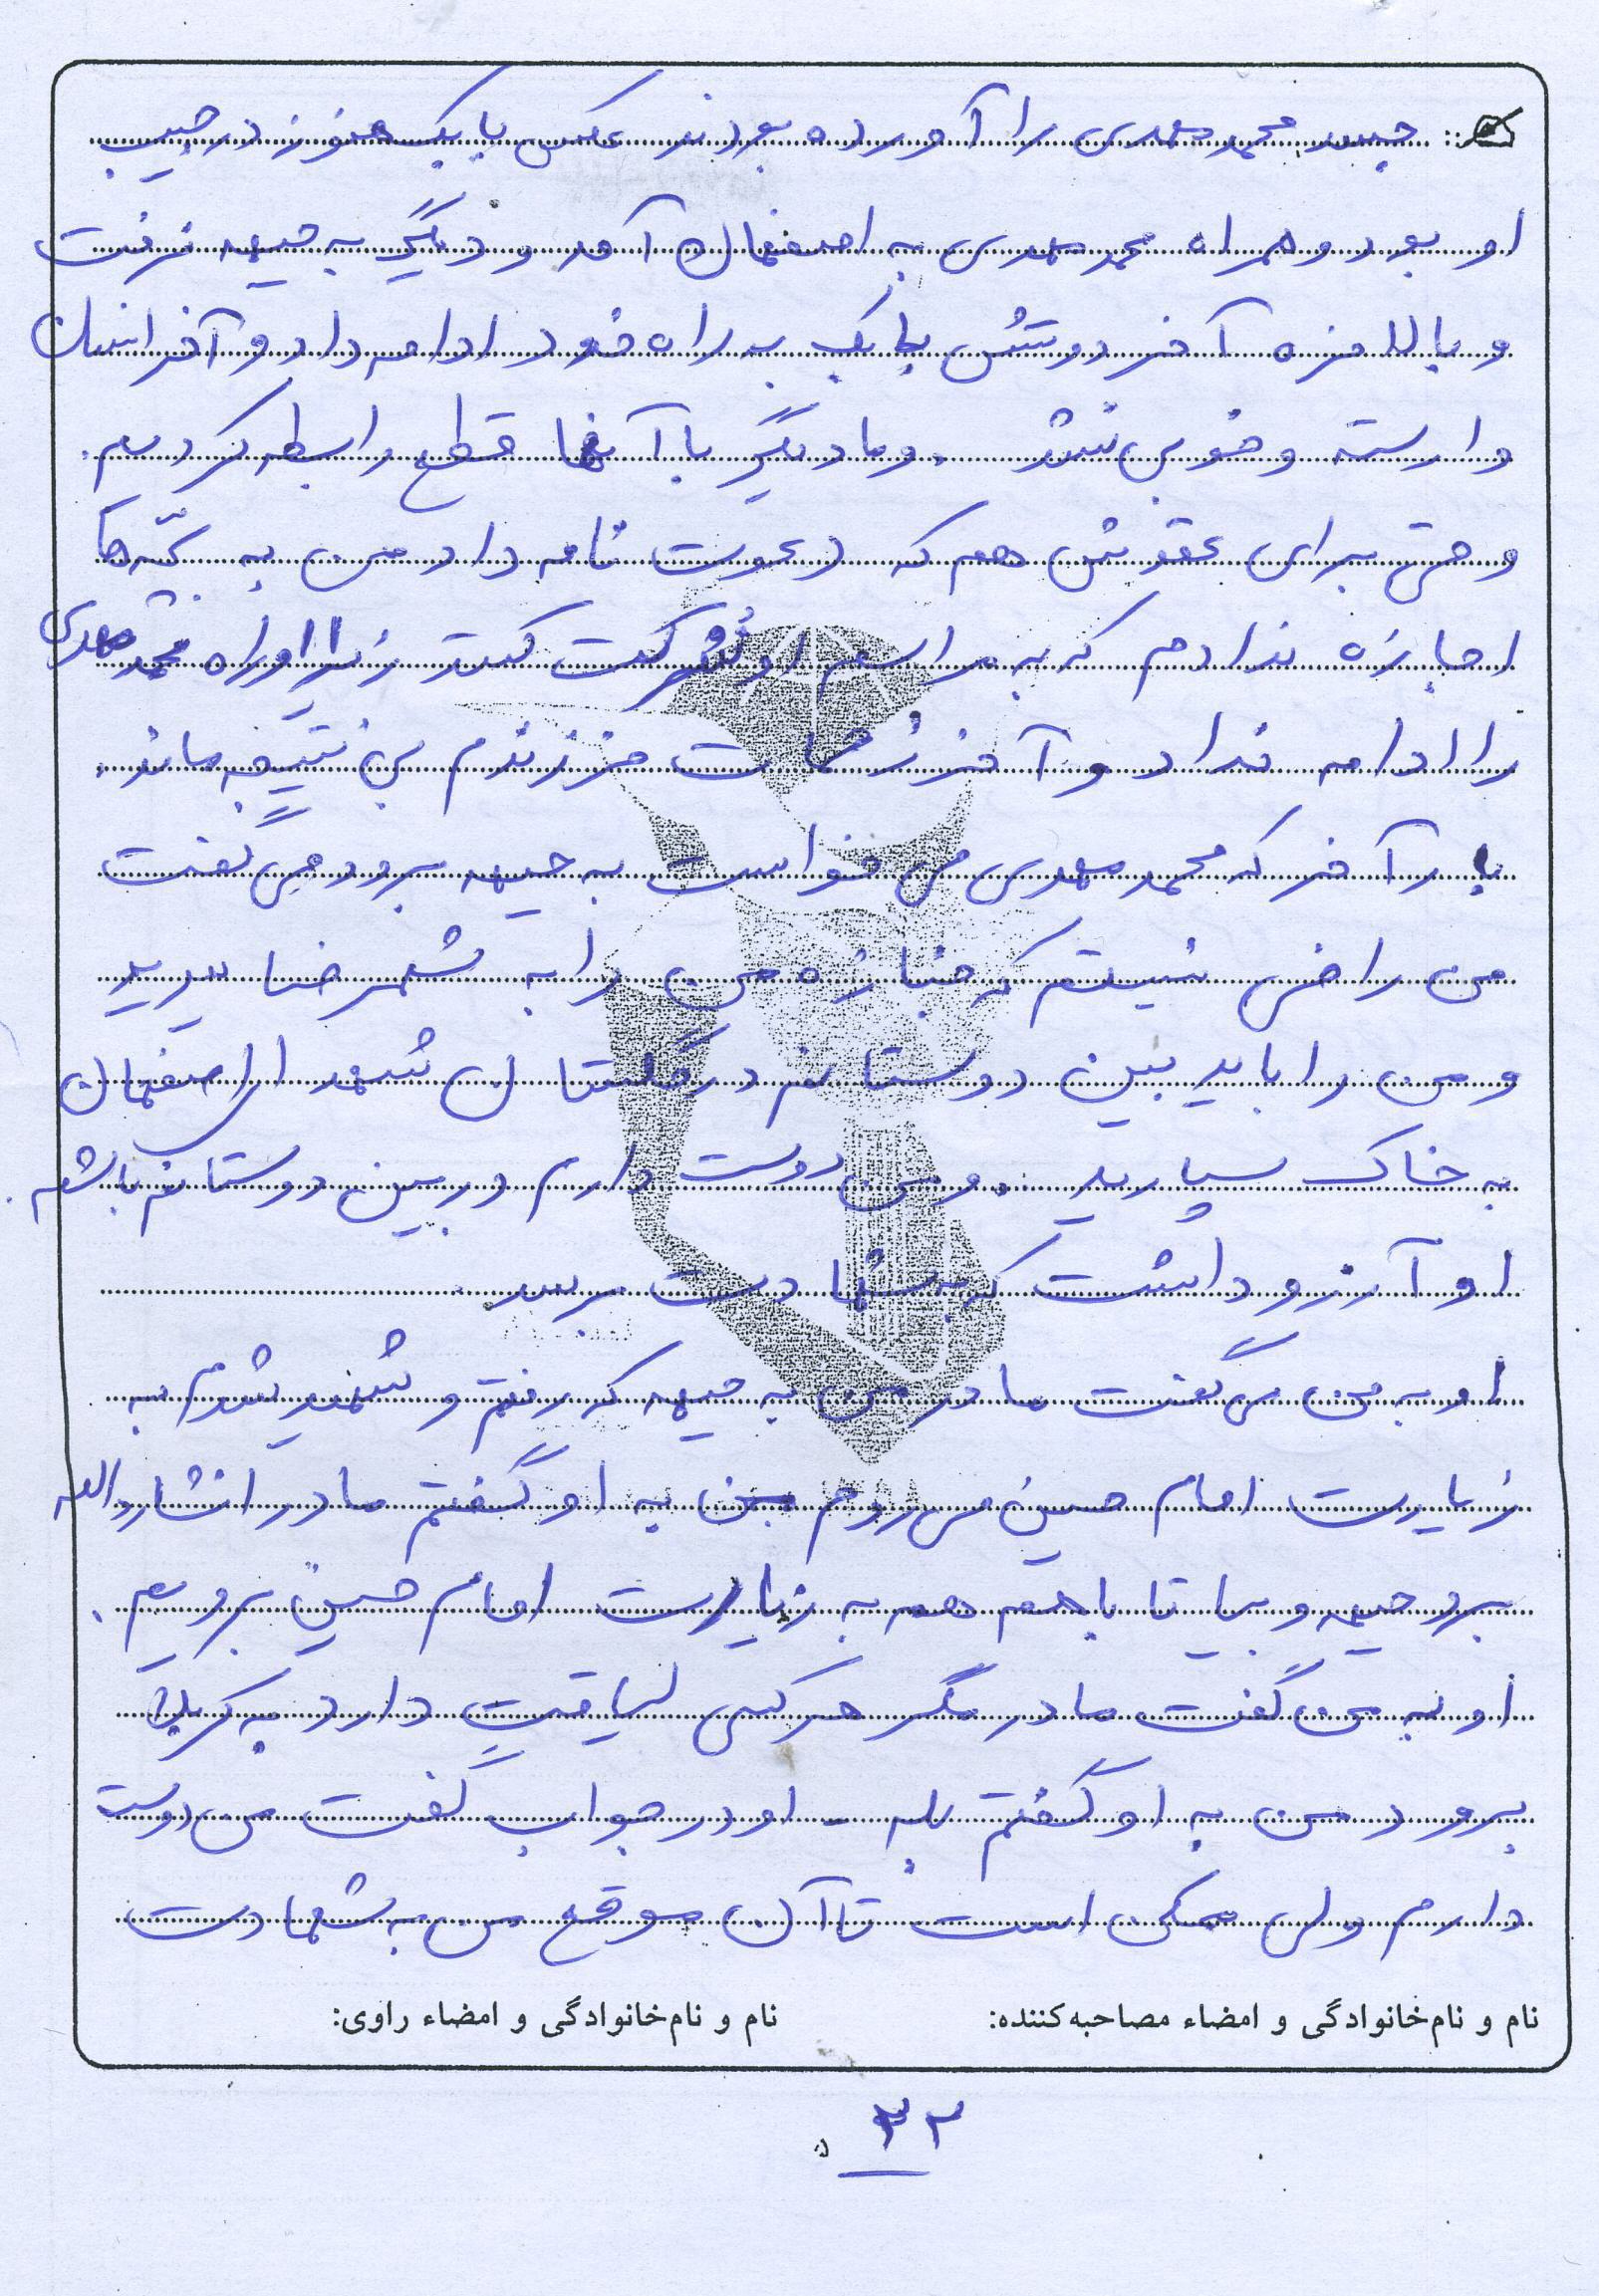 جسد محمد مهدی را آورده بودند عکس بابک هنوز در جیب
او بود و همراه محمد مهدی به اصفهان آمد و دیگر به جبهه نرفت
و بالاخره آخر دوستش بابک به راه خود ادامه داد و آخر انسان
وارسته و خوبی نشد . و ما دیگر با آنها قطع رابطه کردیم .
و حتی برای عقدش هم که دعوت نامه داد من به بچّه‌ها
اجازه ندادم که به مراسم او شرکت کنند زیرا او راه محمد مهدی
را ادامه نداد و آخر زحمات فرزندم بی نتیجه ماند .
بار آخر که محمد مهدی می خواست به جبهه برود می گفت
من راضی نیستم که جنازه من را به شهرضا ببرید
و من را باید بین دوستانم در گلستان شهدای اصفهان
به خاک سپارید . و من دوست دارم در بین دوستانم باشم .
او آرزو داشت که به شهادت برسد .
او به من می گفت مادر من به جبهه که رفتم و شهید شدم به
زیارت امام حسین می روم من به او گفتم مادر انشاءالله
برو جبهه و بیا تا با هم همه به زیارت امام حسین برویم .
او به من گفت مادر مگر هر کسی لیاقت دارد به کربلا
برود من به او گفتم بله - او در جواب گفت من دوست
دارم ولی ممکن است تا آن موقع من به شهادت
نام و نام‌خانوادگی و امضاء مصاحبه‌کننده: نام و نام‌خانوادگی و امضاء راوی:
۳۲